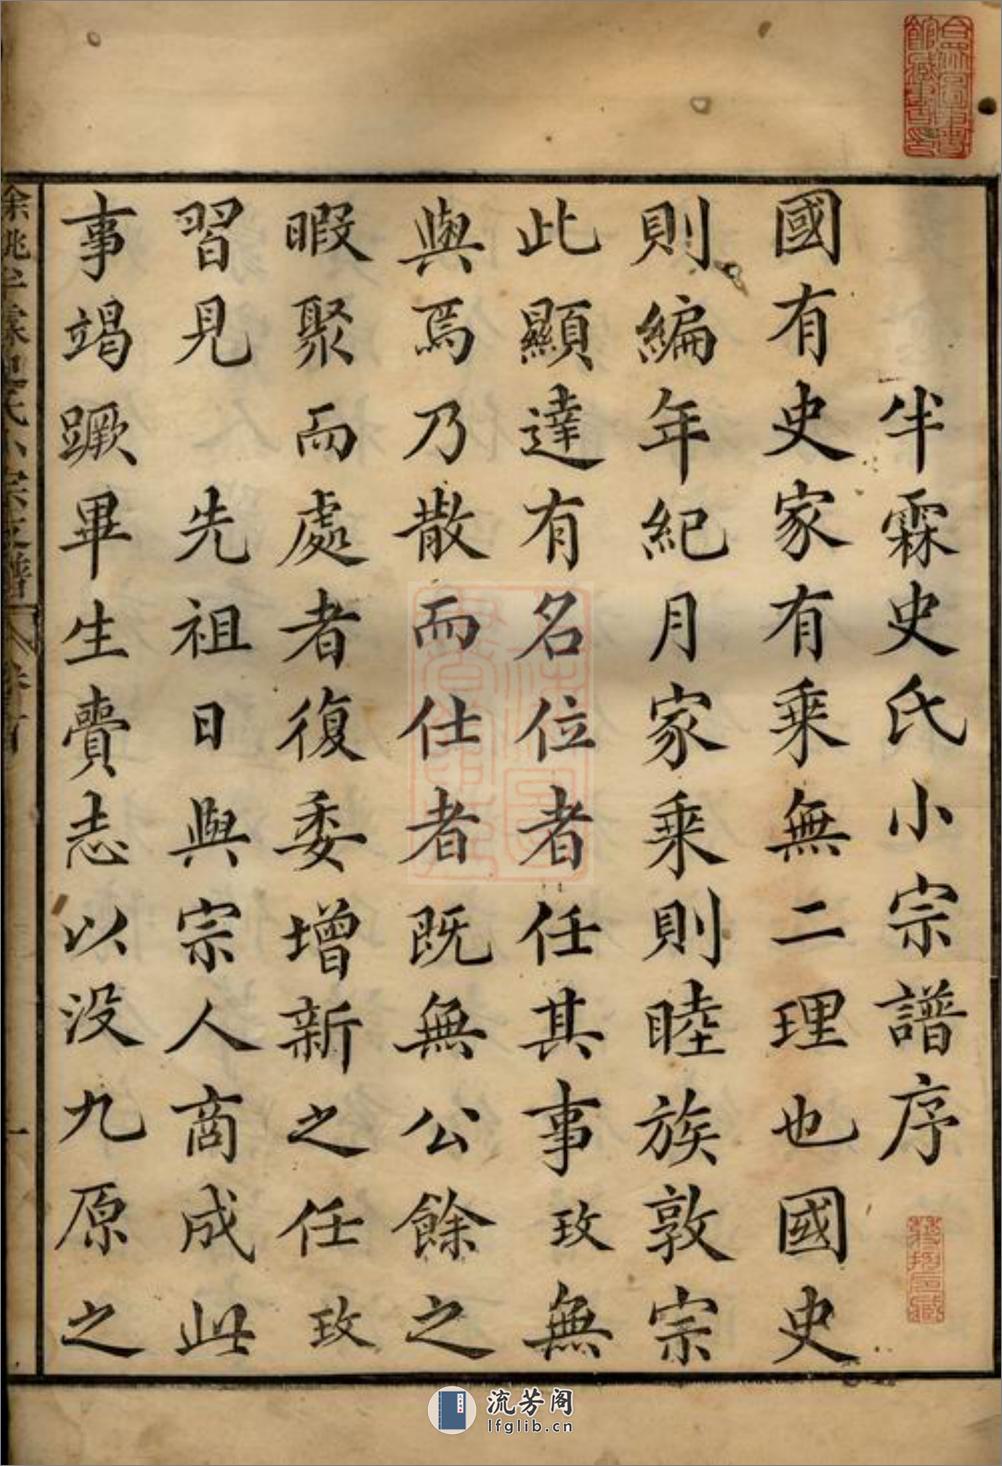 半霖史氏小宗譜序
國有史家有乘無二理也國史
則編年紀月家乘則睦族敦宗
此顯達有名位者任其事玫無
與焉乃散而仕者既無公餘之
暇聚而處者復委增新之任玫
習見先祖日與宗人商成此
事竭蹶畢生賫志以没九原之
一
流芳阁
lfglib.cn